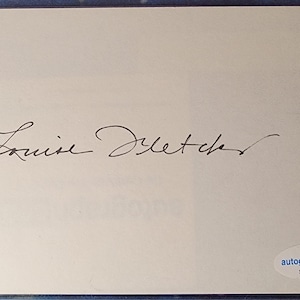 Louise Fletcher
autog